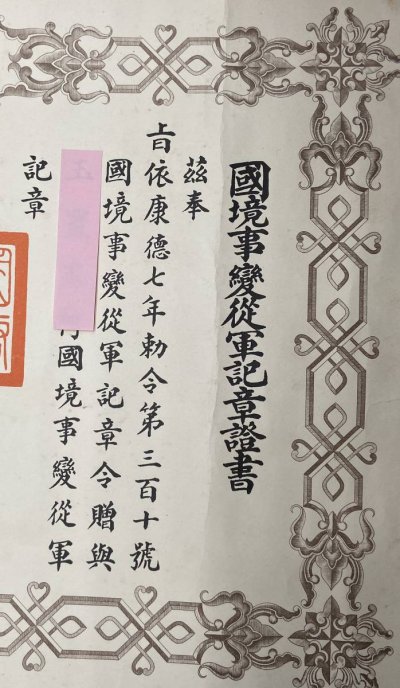 國境事變從軍記章證書
茲奉
旨依康德七年勅令第三百十號
國境事變從軍記章令贈與
國境事變從軍
記章